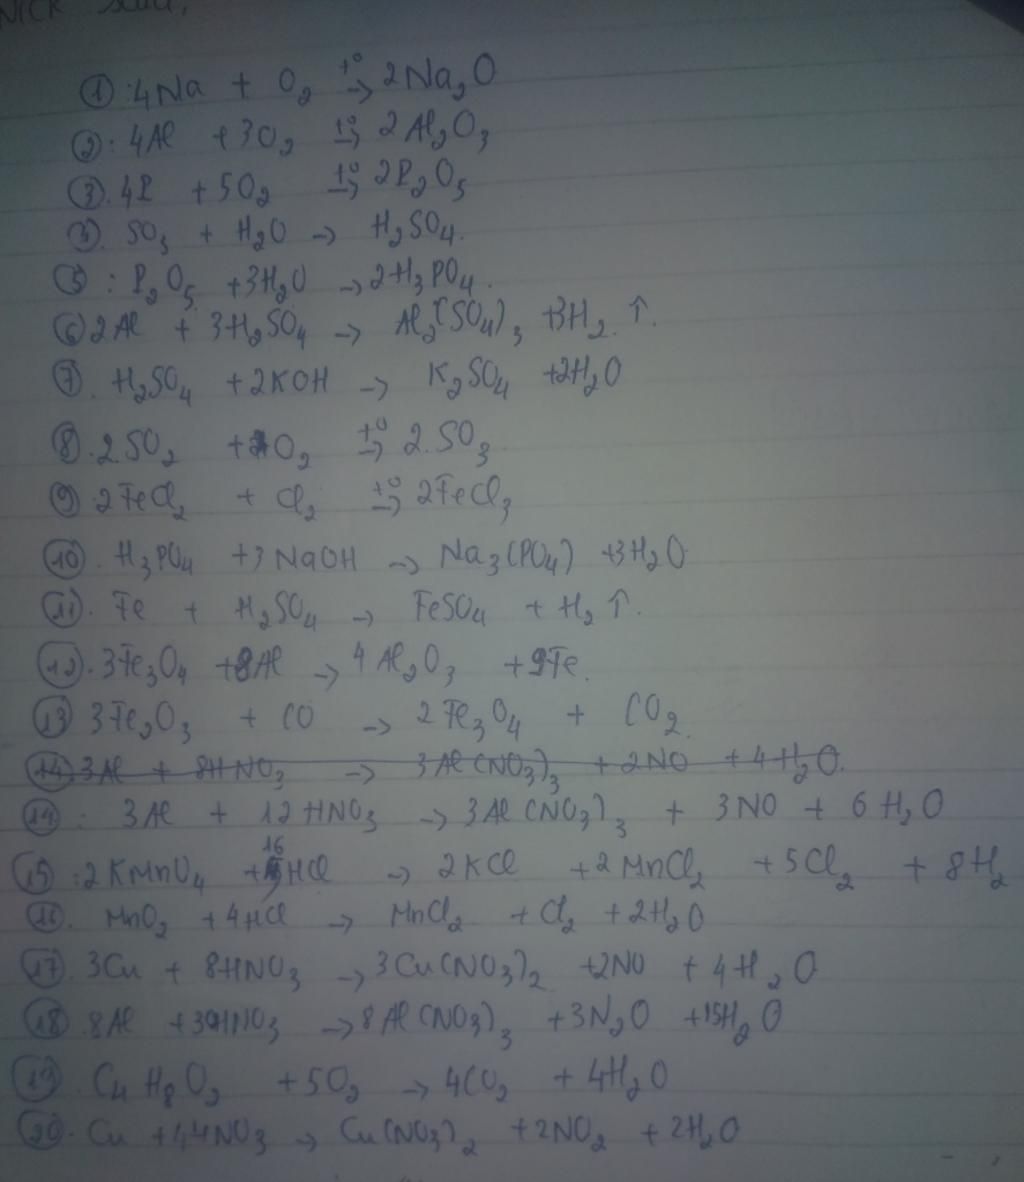 ①: 4Na + O₂ →(t°) 2Na₂O
②: 4Al + 3O₂ →(t°) 2Al₂O₃
③. 4P + 5O₂ →(t°) 2P₂O₅
④. SO₃ + H₂O → H₂SO₄.
⑤: P₂O₅ + 3H₂O → 2H₃PO₄.
⑥ 2Al + 3H₂SO₄ → Al₂(SO₄)₃ + 3H₂ ↑.
⑦. H₂SO₄ + 2KOH → K₂SO₄ + 2H₂O
⑧. 2SO₂ + O₂ →(t°) 2.SO₃
⑨. 2FeCl₂ + Cl₂ →(t°) 2FeCl₃
⑩. H₃PO₄ + 3NaOH → Na₃(PO₄) + 3H₂O
⑪. Fe + H₂SO₄ → FeSO₄ + H₂ ↑.
⑫. 3Fe₃O₄ + 8Al → 4Al₂O₃ + 9Fe.
⑬ 3Fe₂O₃ + CO → 2Fe₃O₄ + CO₂.
⑭. 3Al + 8HNO₃ → 3Al(NO₃)₃ + 2NO + 4H₂O.
⑭: 3Al + 12HNO₃ → 3Al(NO₃)₃ + 3NO + 6H₂O
⑮: 2KMnO₄ + 16HCl → 2KCl + 2MnCl₂ + 5Cl₂ + 8H₂
⑯. MnO₂ + 4HCl → MnCl₂ + Cl₂ + 2H₂O
⑰. 3Cu + 8HNO₃ → 3Cu(NO₃)₂ + 2NO + 4H₂O
⑱. 8Al + 30HNO₃ → 8Al(NO₃)₃ + 3N₂O + 15H₂O
⑲. C₄H₈O₂ + 5O₂ → 4CO₂ + 4H₂O
⑳. Cu + 4HNO₃ → Cu(NO₃)₂ + 2NO₂ + 2H₂O